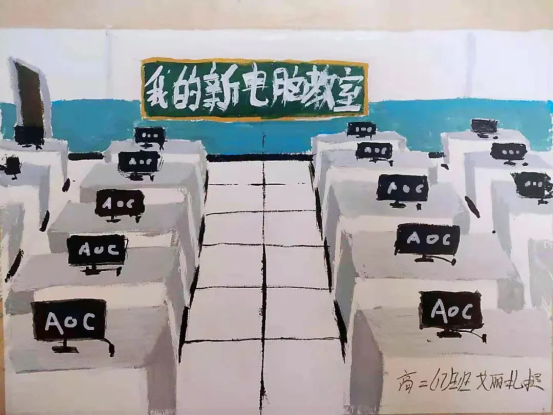 我的新电脑教室
AOC
AOC
AOC
AOC
AOC
AOC
AOC
高二 班 艾丽